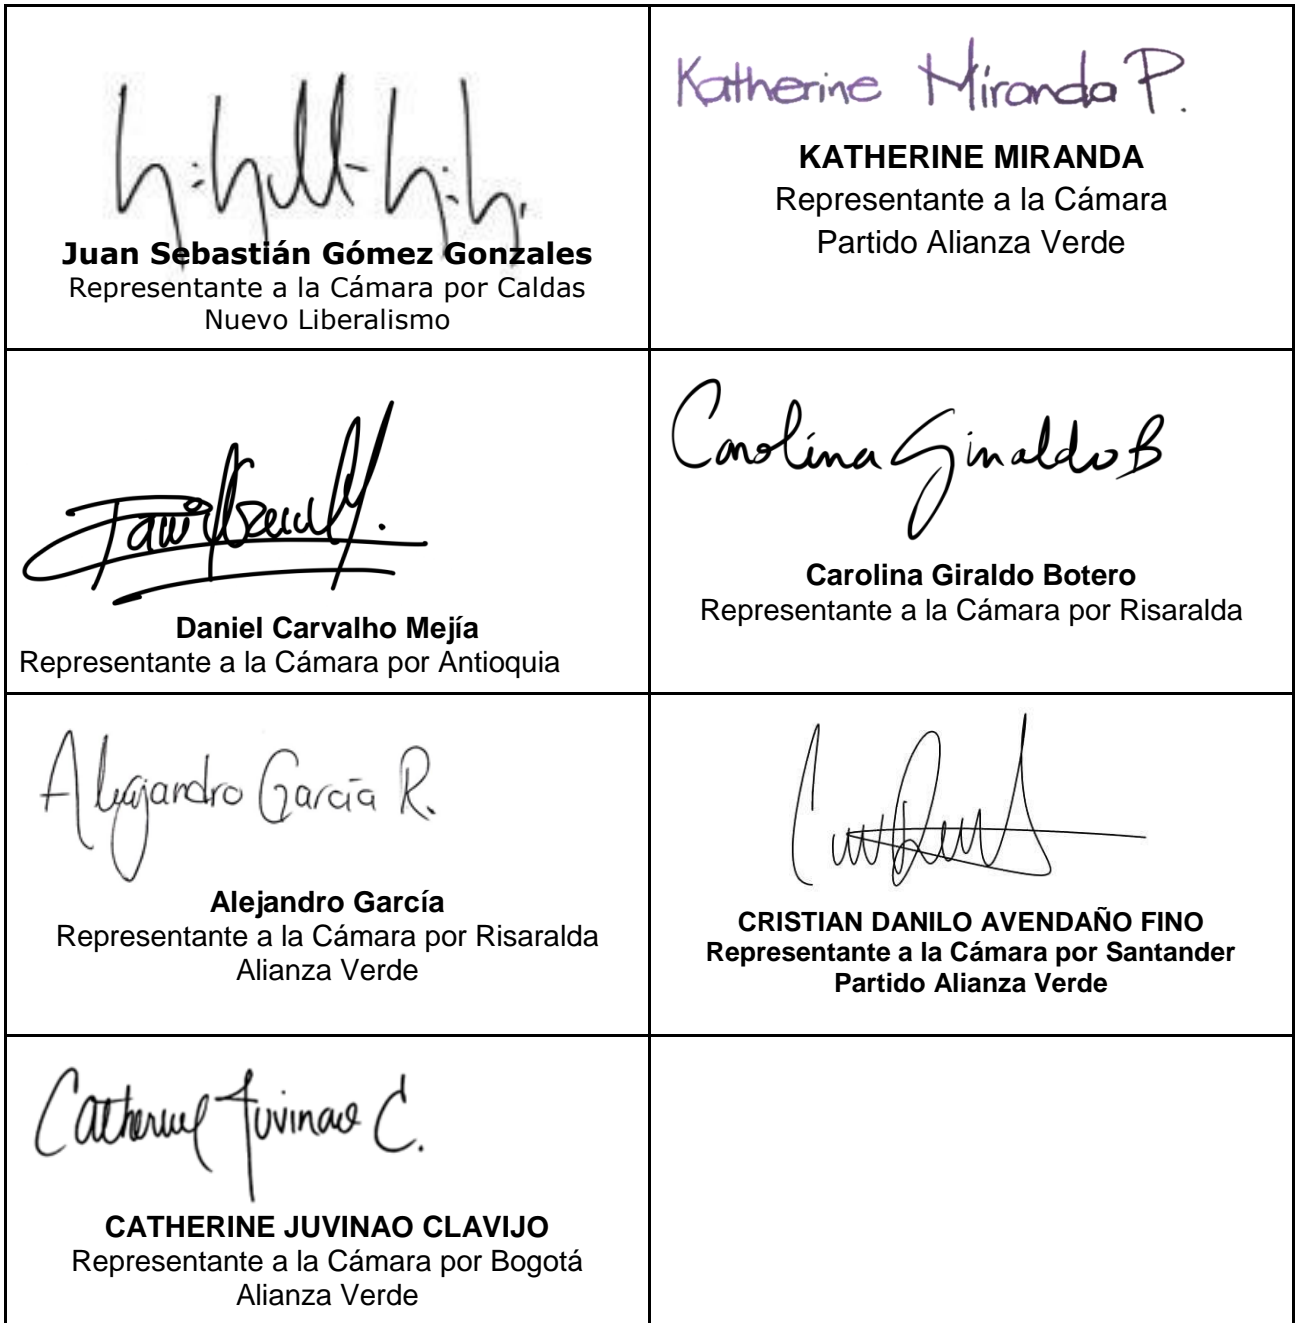 Juan Sebastián Gómez Gonzales
Representante a la Cámara por Caldas
Nuevo Liberalismo
Katherine Miranda P.
KATHERINE MIRANDA
Representante a la Cámara
Partido Alianza Verde
Daniel Carvalho Mejía
Representante a la Cámara por Antioquia
Carolina Giraldo B
Carolina Giraldo Botero
Representante a la Cámara por Risaralda
Alejandro García R.
Alejandro García
Representante a la Cámara por Risaralda
Alianza Verde
CRISTIAN DANILO AVENDAÑO FINO
Representante a la Cámara por Santander
Partido Alianza Verde
Catherine Juvinao C.
CATHERINE JUVINAO CLAVIJO
Representante a la Cámara por Bogotá
Alianza Verde